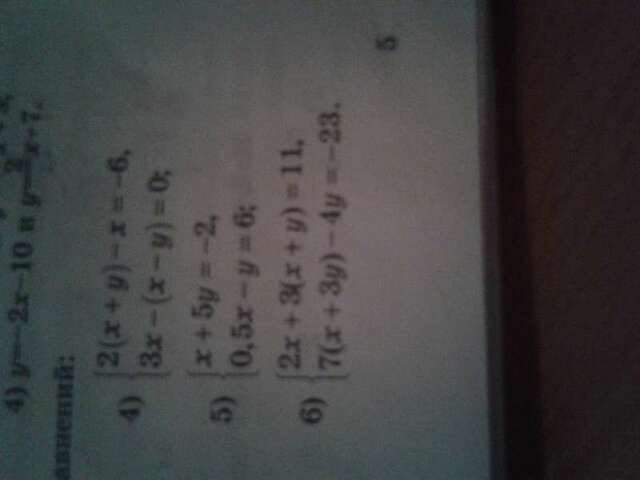 4) y=-2x-10 и y= x+7.
авнений:
4) {2(x+y)-x=-6,
3x-(x-y)=0;
5) {x+5y=-2,
0,5x-y=6;
6) {2x+3(x+y)=11,
7(x+3y)-4y=-23.
5